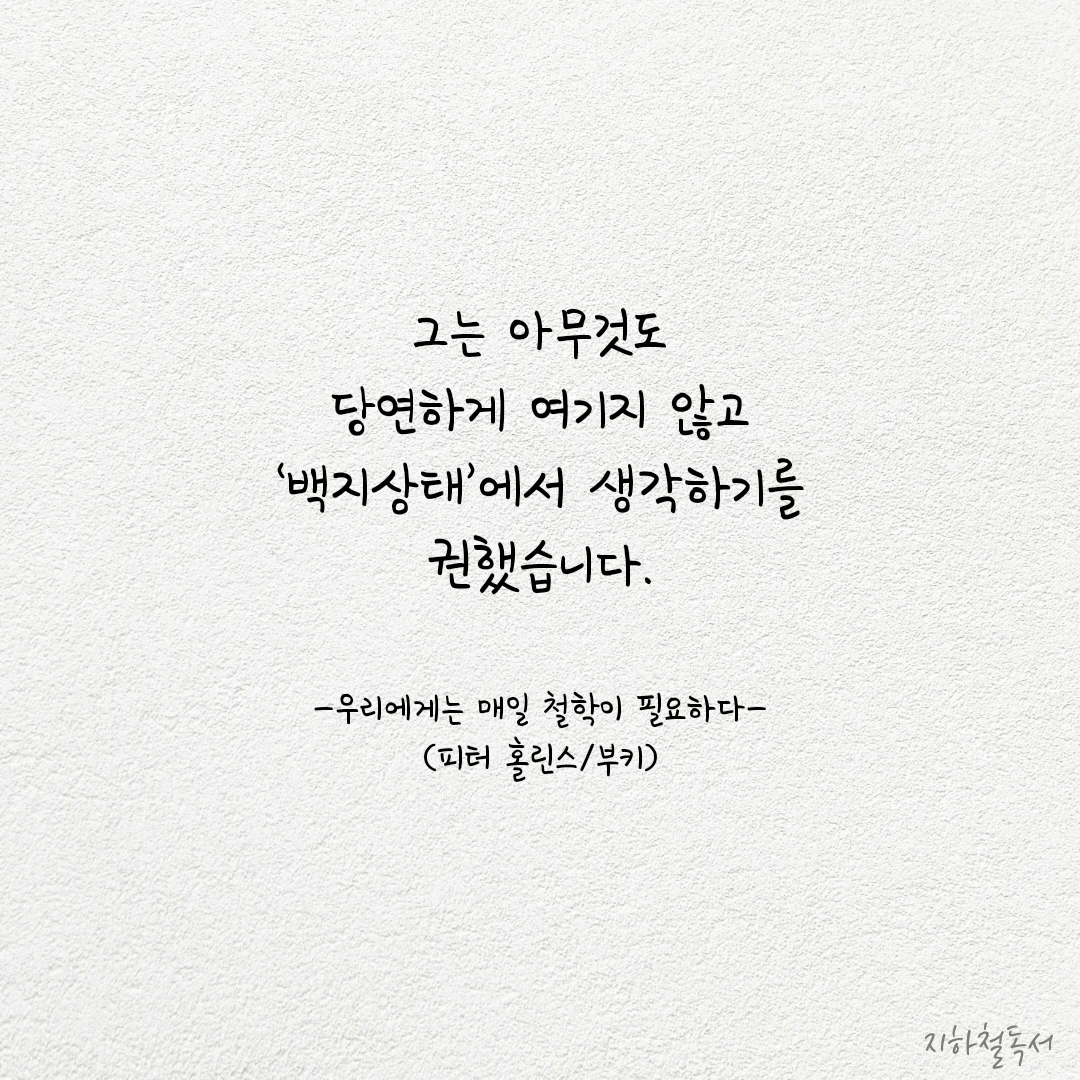 그는 아무것도
당연하게 여기지 않고
‘백지상태’에서 생각하기를
권했습니다.
-우리에게는 매일 철학이 필요하다-
(피터 홀린스/부키)
지하철독서